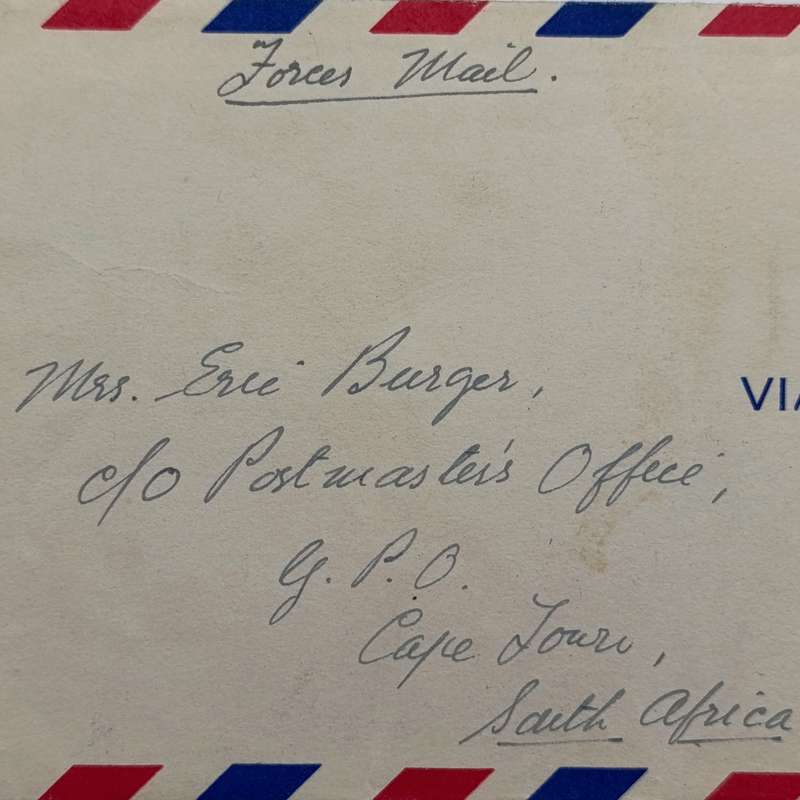 Forces Mail.
Mrs. Eric Burger,
VIA
c/o Postmaster's Office,
G. P. O.
Cape Town,
South Africa